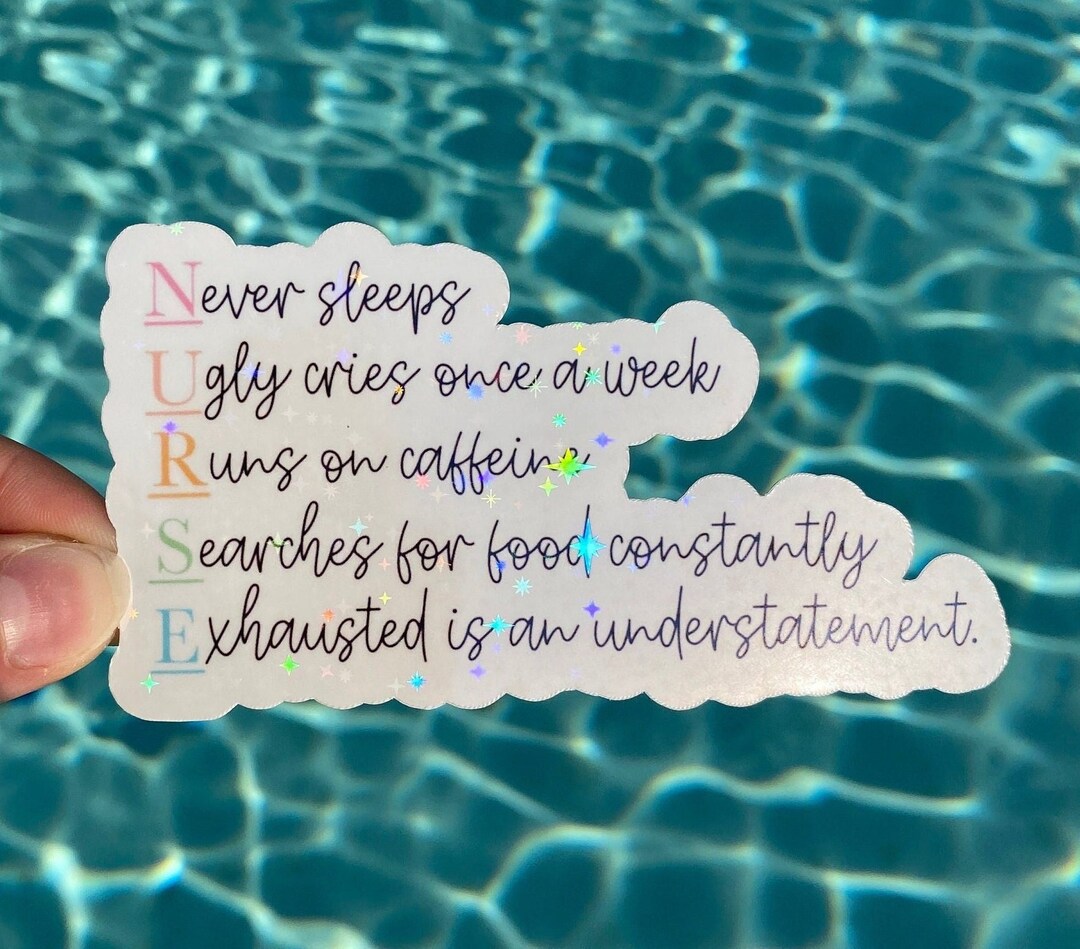 Never sleeps
Ugly cries once a week
Runs on caffeine
Searches for food constantly
Exhausted is an understatement.